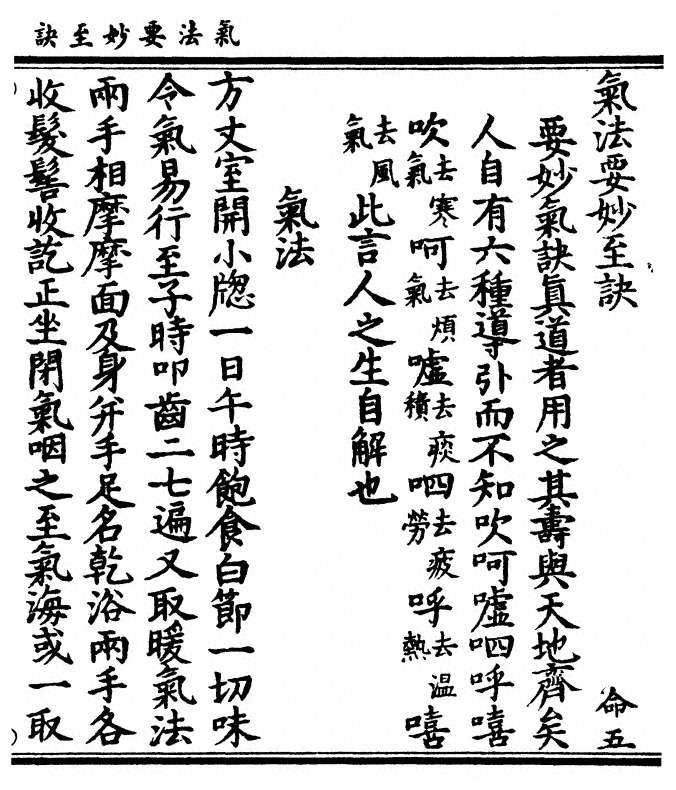 氣法要妙至訣
氣法要妙至訣 命五
要妙氣訣眞道者用之其壽與天地齊矣
人自有六種導引而不知吹呵噓呬呼嘻
吹去寒氣呵去煩氣噓去痰積呬去疲勞呼去温熱嘻
去風氣此言人之生自解也
氣法
方丈室開小牎一日午時飽食白節一切味
令氣易行至子時叩齒二七遍又取暖氣法
兩手相摩摩面及身弁手足名乾浴兩手各
收髮髻收訖正坐閉氣咽之至氣海或一取